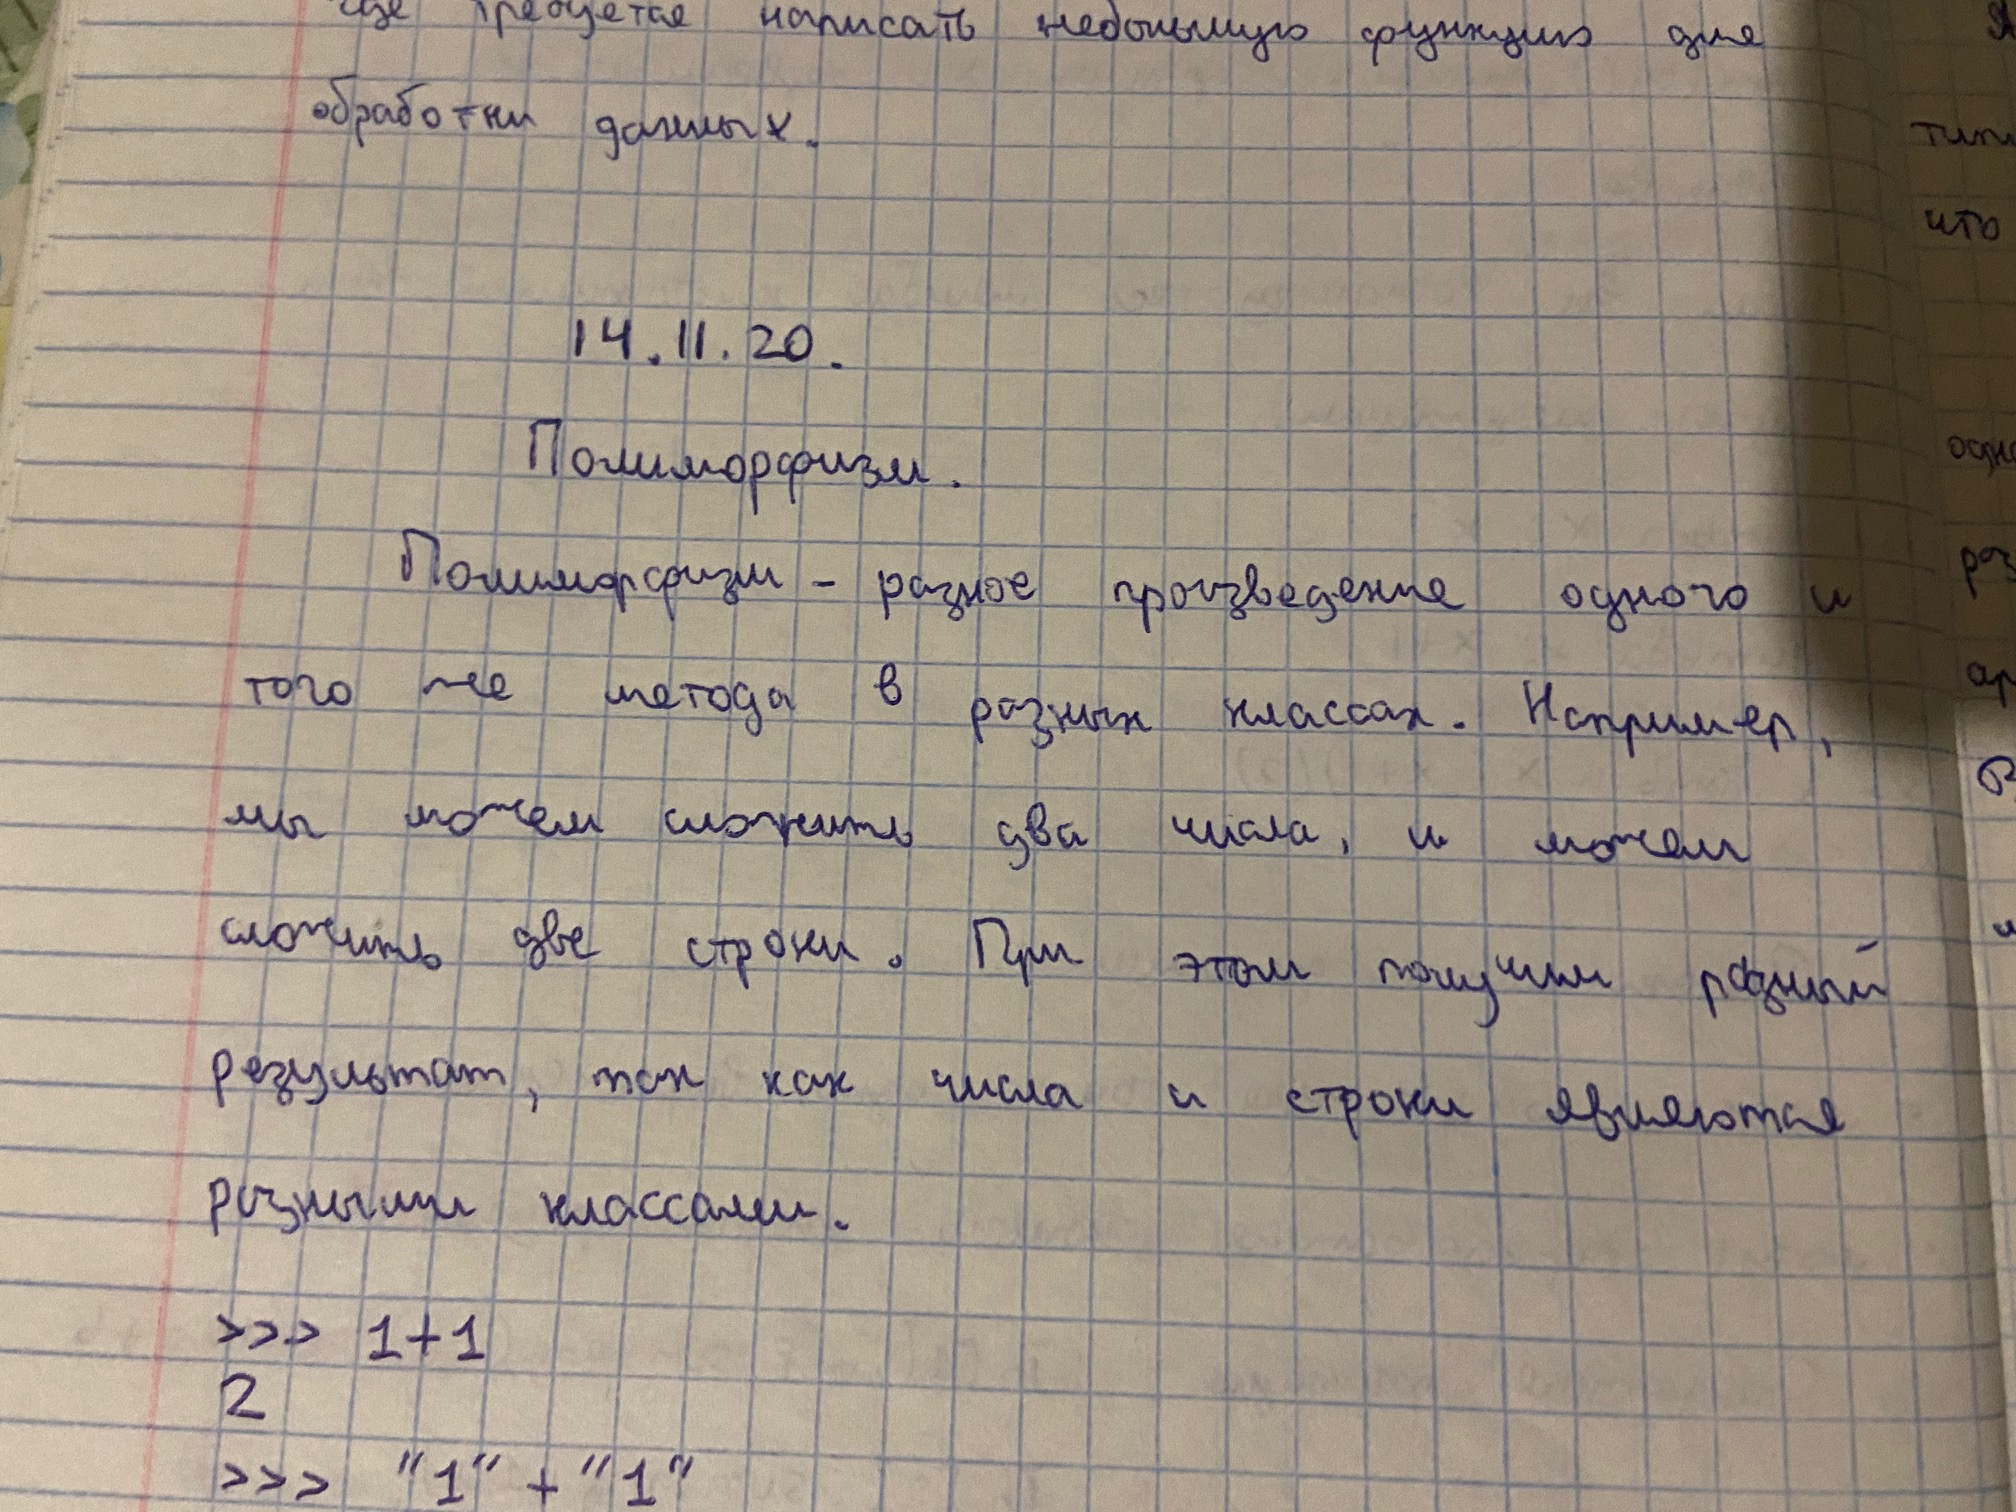 требуется написать небольшую функцию для
обработки данных.
14.11.20.
Полиморфизм.
Полимрфизм - разное произведение одного и
того же метода в разных классах. Например,
мы можем сложить два числа, и можем
сложить две строки. При этом получим разный
результат, так как числа и строки являются
разными классами.
>>> 1+1
2
>>> "1" + "1"